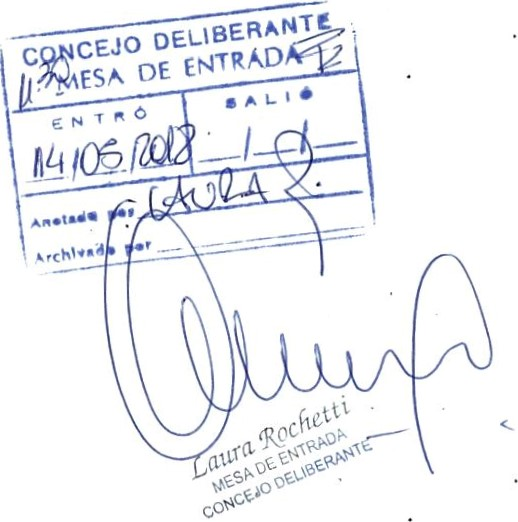 CONCEJO DELIBERANTE
MESA DE ENTRADA
ENTRÓ SALIÓ
14/05/2018 / /
Anotado por LAURA R.
Archivado por
Laura Rochetti
MESA DE ENTRADA
CONCEJO DELIBERANTE